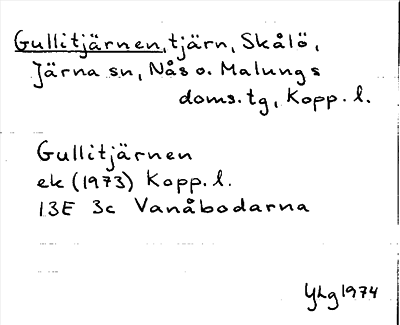 Gullitjärnen, tjärn, Skålö,
Järna sn, Nås o. Malungs
doms.tg, Kopp. l.
Gullitjärnen
ek (1973) Kopp. l.
13E 3c Vanåbodarna
YLg 1974